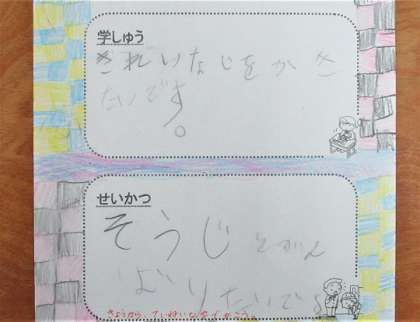 学しゅう
きれいなじをかき
たいです。
せいかつ
そうじをがん
ばりたいです